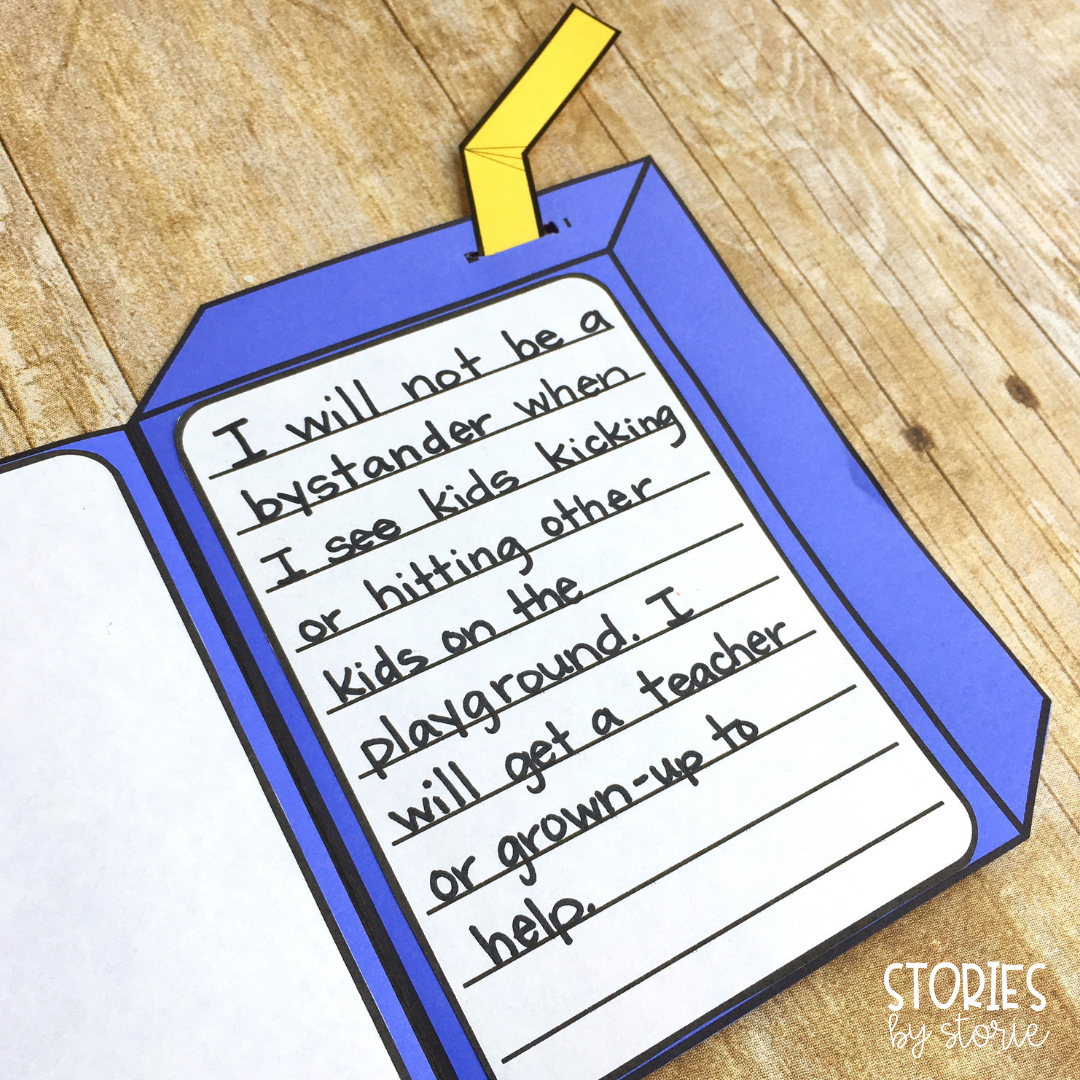 I will not be a
bystander when
I see kids kicking
or hitting other
kids on the
playground. I
will get a teacher
or grown-up to
help.
STORIES
by storie